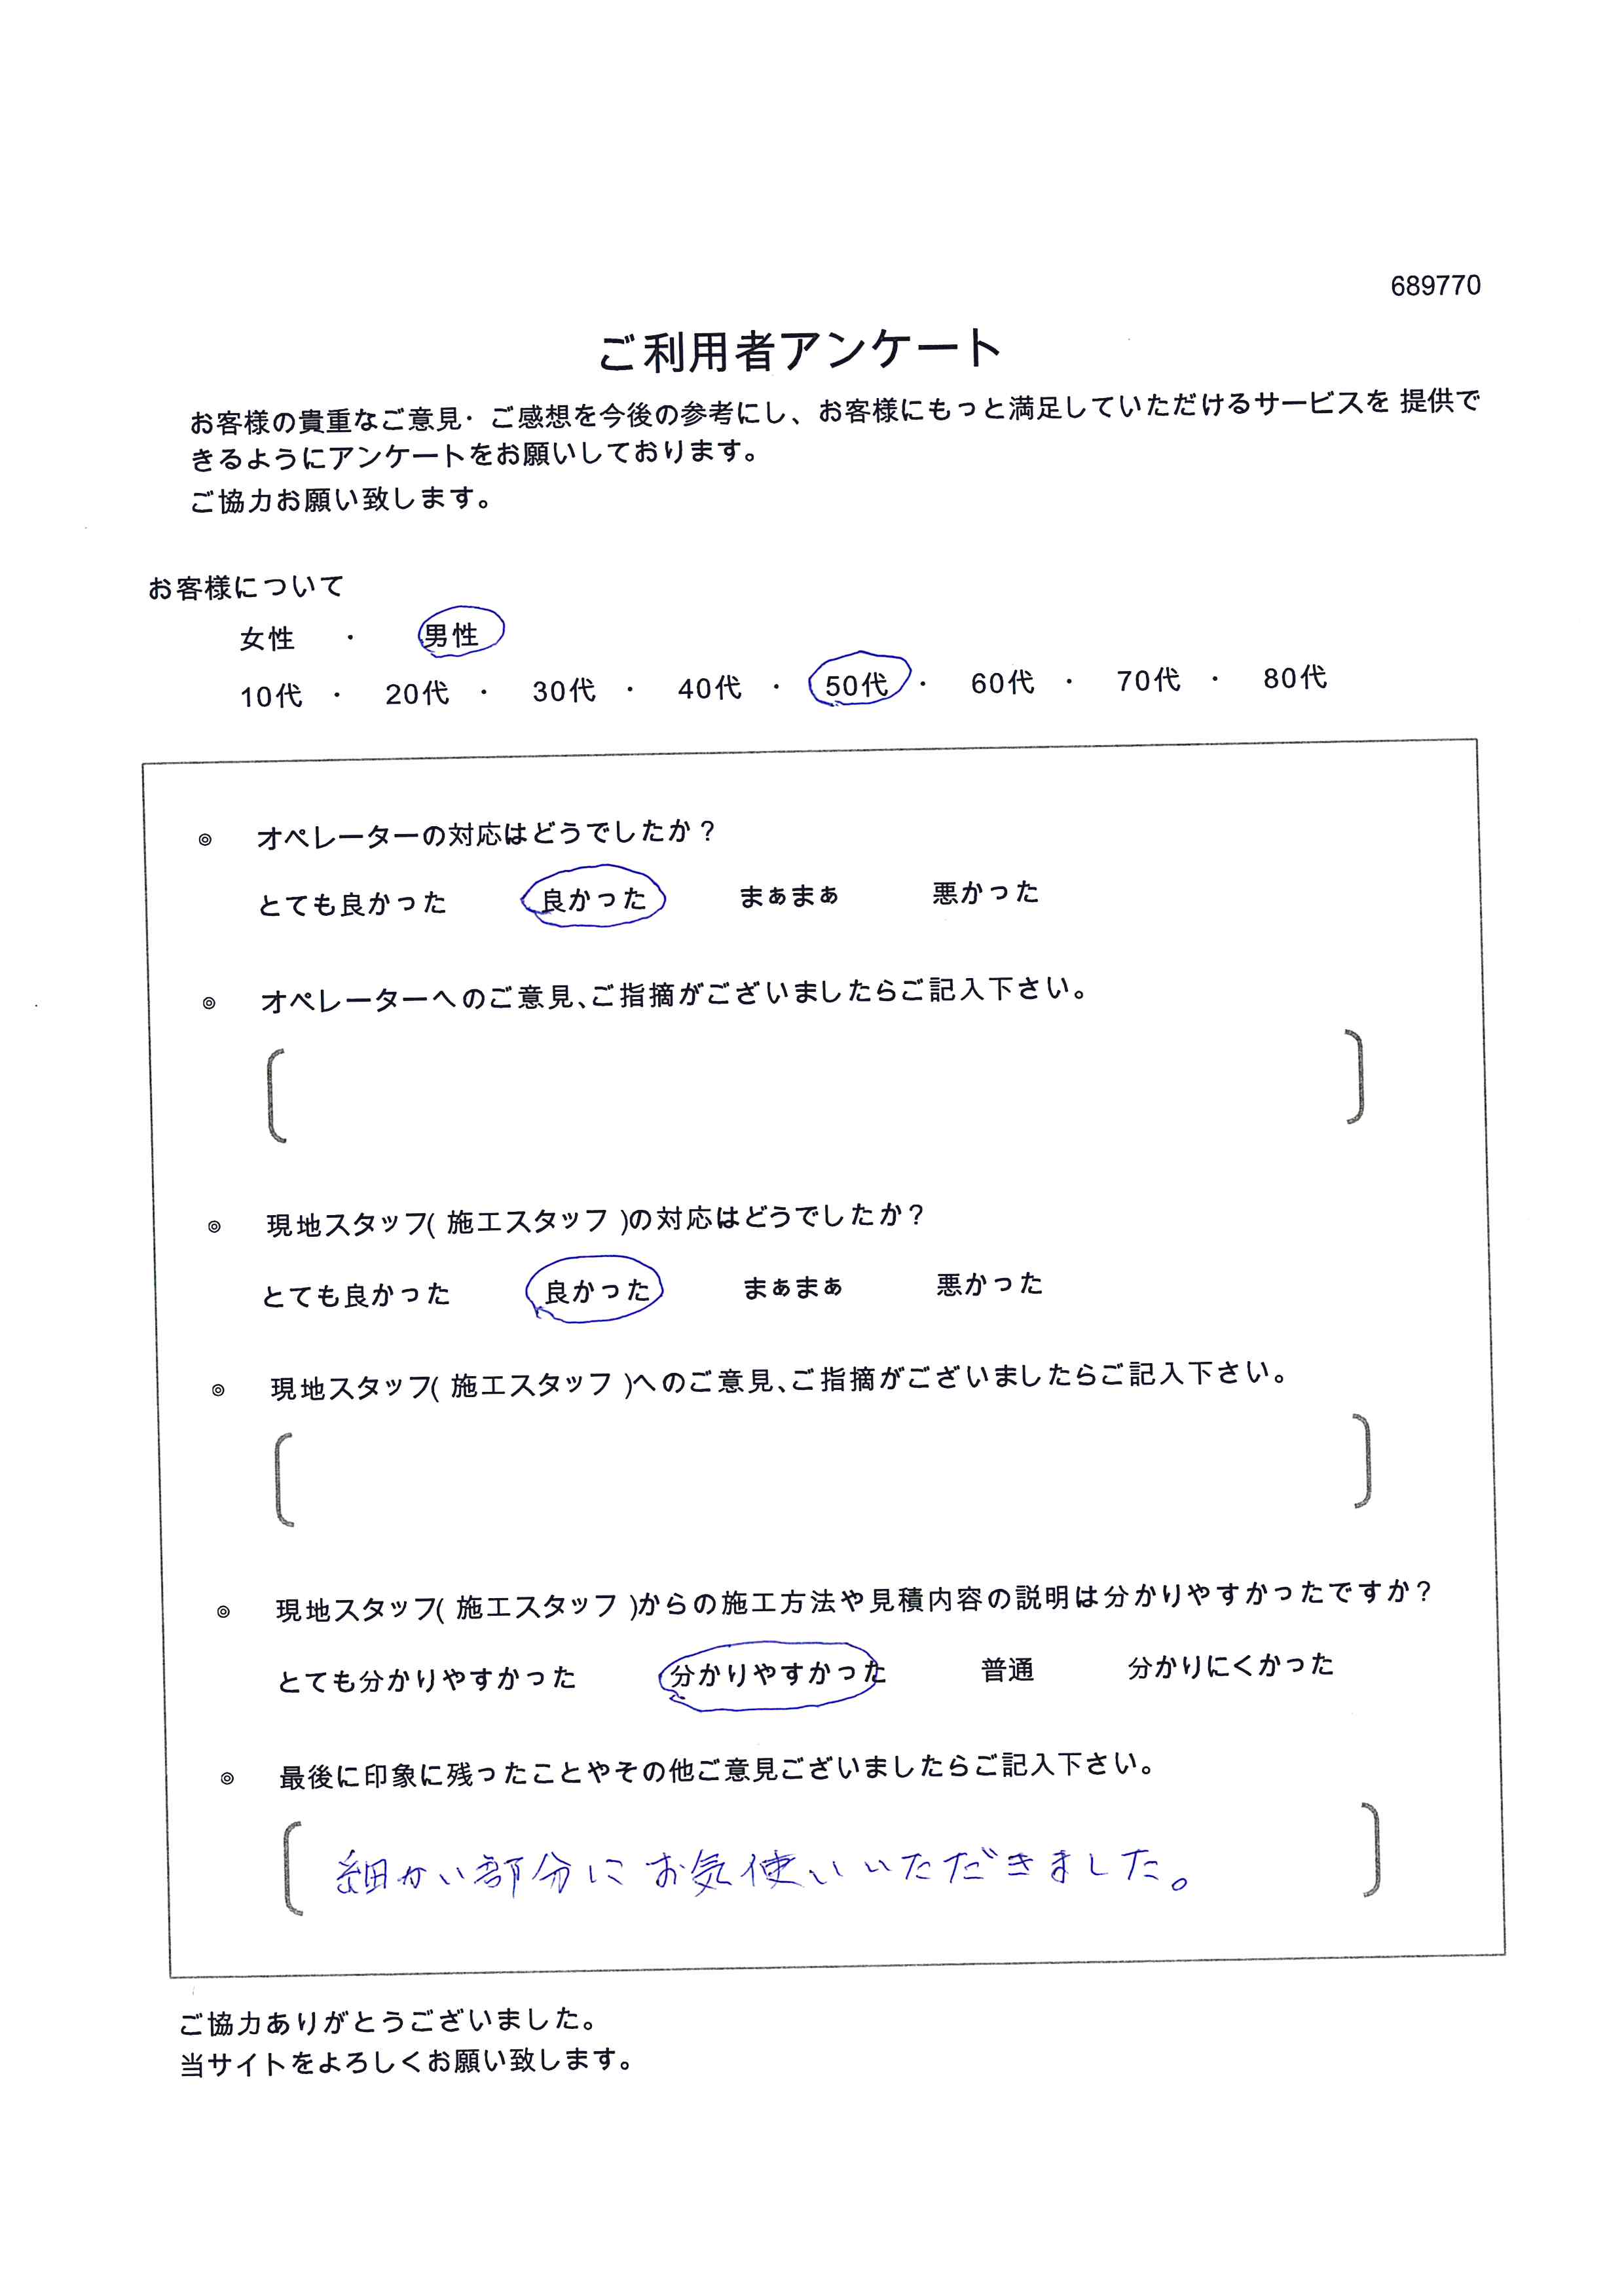 689770
ご利用者アンケート
お客様の貴重なご意見・ご感想を今後の参考にし、お客様にもっと満足していただけるサービスを 提供で
きるようにアンケートをお願いしております。
ご協力お願い致します。
お客様について
女性 ・ 男性
10代 ・ 20代 ・ 30代 ・ 40代 ・ 50代 ・ 60代 ・ 70代 ・ 80代
◎ オペレーターの対応はどうでしたか？
とても良かった 良かった まぁまぁ 悪かった
◎ オペレーターへのご意見、ご指摘がございましたらご記入下さい。
◎ 現地スタッフ( 施工スタッフ )の対応はどうでしたか？
とても良かった 良かった まぁまぁ 悪かった
◎ 現地スタッフ( 施工スタッフ )へのご意見、ご指摘がございましたらご記入下さい。
◎ 現地スタッフ( 施工スタッフ )からの施工方法や見積内容の説明は分かりやすかったですか？
とても分かりやすかった 分かりやすかった 普通 分かりにくかった
◎ 最後に印象に残ったことやその他ご意見ございましたらご記入下さい。
細かい部分にお気使いいただきました。
ご協力ありがとうございました。
当サイトをよろしくお願い致します。